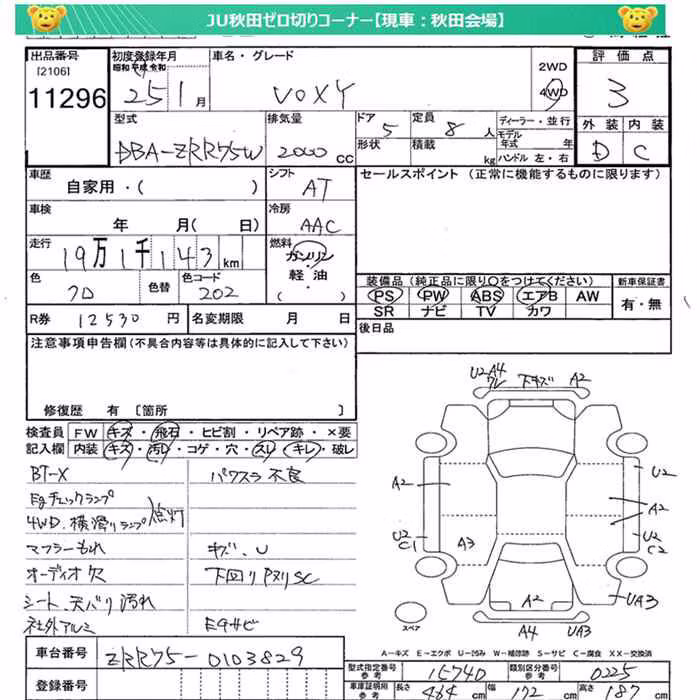 JU秋田ゼロ切りコーナー【現車：秋田会場】
出品番号
[2106]
11296
初度登録年月
昭和 平成 令和
25年 1月
車名・グレード
VOXY
2WD
4WD
評価点
3
外装 内装
D C
型式
DBA-ZRR75W
排気量
2000 CC
ドア
5
形状
定員
8人
積載
kg
ディーラー・並行
モデル
年式 年
ハンドル 左・右
車歴
自家用・( )
シフト
AT
セールスポイント (正常に機能するものに限ります)
車検
年 月( 日)
冷房
AAC
走行
19万1千143km
燃料
ガソリン
軽油
・( )
色
クロ
色替
色コード
202
装備品(純正品に限り○をつけてください)
PS PW ABS エアB AW
SR ナビ TV カワ
新車保証書
有・無
R券 12530円
名変期限 月 日
後日品
注意事項申告欄(不具合内容等は具体的に記入して下さい)
修復歴 有 [箇所 ]
検査員 FW キズ・飛石・ヒビ割・リペア跡・×要
記入欄 内装 キズ・汚レ・コゲ・穴・スレ・キレ・破レ
BT-X
パワスラ不良
Egチェックランプ
4WD.横滑りランプ 点灯
マフラーもれ
キズ、U
オーディオ欠
下回りPヌリSC
シート、天バリ汚れ
社外アルミ
Egサビ
U2 A4
ワレ
下キズ
A2
A2
U2
A2
U2
C1
A3
U2
C2
A2
UA3
スペア
A4
UA3
A-キズ E-エクボ U-凹み W-補修跡 S-サビ C-腐食 XX-交換済
車台番号
ZRR75-0103829
登録番号
型式指定番号
参考
15740
類別区分番号
参考
0225
車庫証明用
参考
長さ
464 cm
幅
172 cm
高さ
187 cm